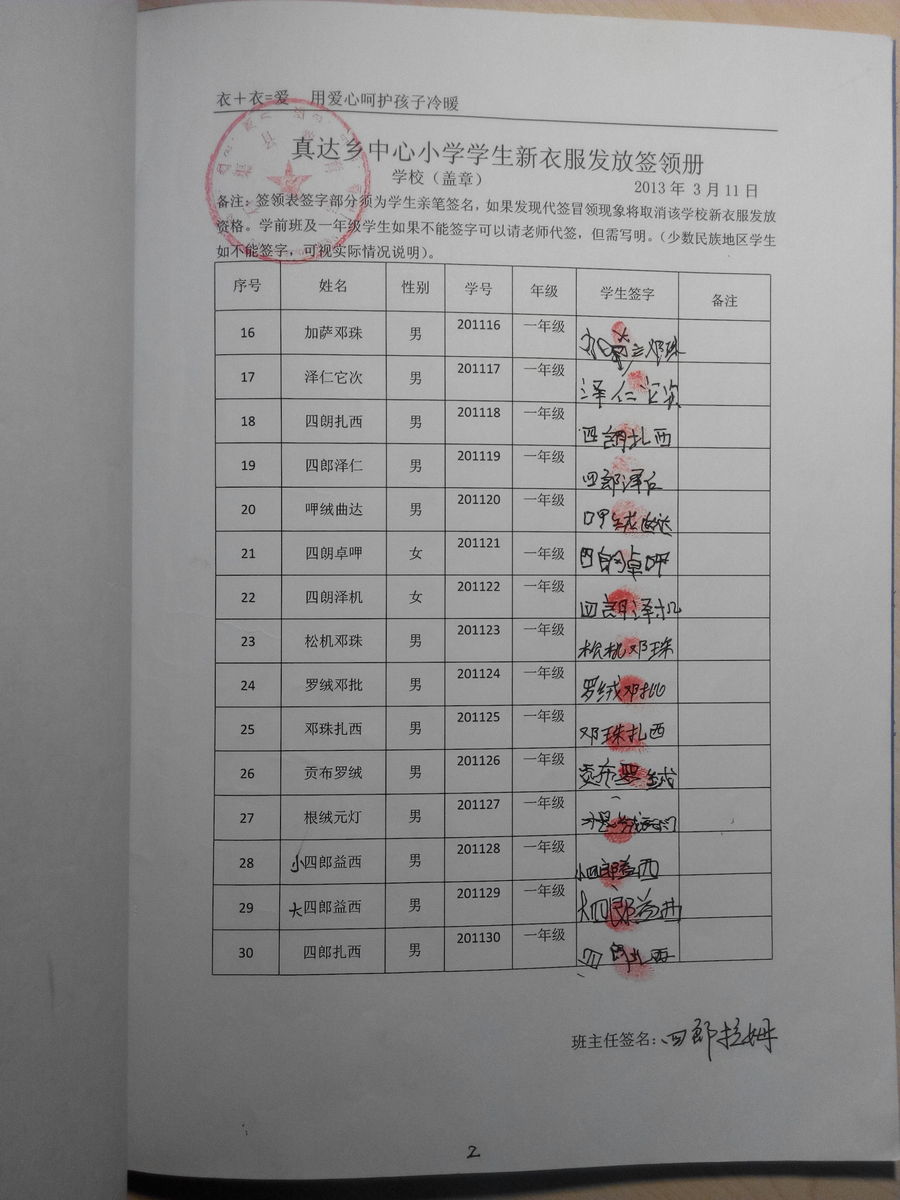 衣＋衣=爱 用爱心呵护孩子冷暖
真达乡中心小学学生新衣服发放签领册
学校（盖章） 2013年 3月11日
备注：签领表签字部分须为学生亲笔签名，如果发现代签冒领现象将取消该学校新衣服发放
资格。学前班及一年级学生如果不能签字可以请老师代签，但需写明。（少数民族地区学生
如不能签字，可视实际情况说明）。
序号 姓名 性别 学号 年级 学生签字 备注
16 加萨邓珠 男 201116 一年级 邓珠
17 泽仁它次 男 201117 一年级 泽仁它次
18 四朗扎西 男 201118 一年级 四朗扎西
19 四郎泽仁 男 201119 一年级 四郎泽仁
20 呷绒曲达 男 201120 一年级 呷绒曲达
21 四朗卓呷 女 201121 一年级 四朗卓呷
22 四朗泽机 女 201122 一年级 四朗泽机
23 松机邓珠 男 201123 一年级 松机邓珠
24 罗绒邓批 男 201124 一年级 罗绒邓批
25 邓珠扎西 男 201125 一年级 邓珠扎西
26 贡布罗绒 男 201126 一年级 贡布罗绒
27 根绒元灯 男 201127 一年级
28 小四郎益西 男 201128 一年级 小四郎益西
29 大四郎益西 男 201129 一年级 大四郎益西
30 四郎扎西 男 201130 一年级 四郎扎西
班主任签名：四郎拉姆
2